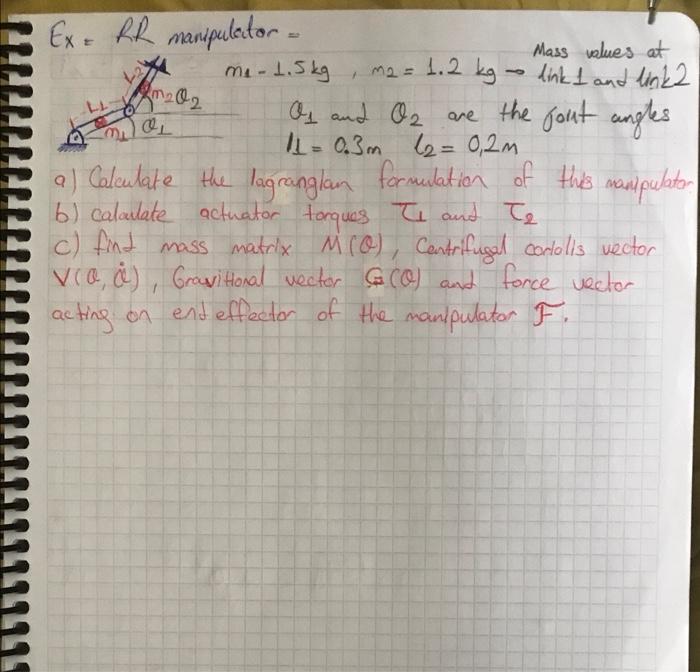 Ex = RR manipulator =
Mass values at
m1 - 1.5 kg , m2 = 1.2 kg → link 1 and link 2
L1 L2 m1 m2 θ1 θ2
θ1 and θ2 are the joint angles
l1 = 0.3m l2 = 0,2m
a) Calculate the lagrangian formulation of this manipulator
b) calculate actuator torques τ1 and τ2
c) find mass matrix M(θ), Centrifugal coriolis vector
V(θ, θ̇), Gravitional vector G(θ) and force vector
acting on end effector of the manipulator F.